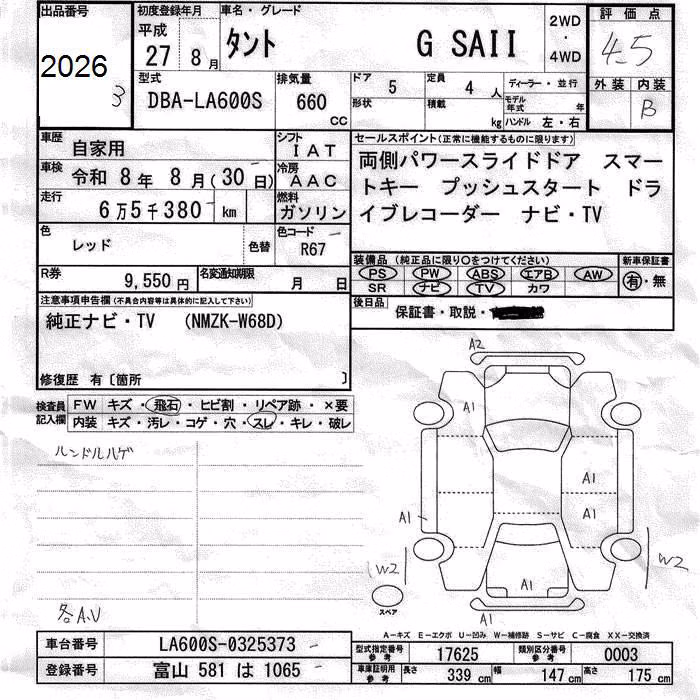 出品番号 初度登録年月 車名・グレード 2WD・4WD 評価点
2026 3 平成 27 8月 タント G SAII 4.5
型式 排気量 ドア 5 定員 4人 ディーラー・並行 外装 内装
DBA-LA600S 660 CC 形状 積載 kg モデル年式 年 ハンドル 左・右 B
車歴 自家用 シフト IAT セールスポイント(正常に機能するものに限ります)
車検 令和 8年 8月(30日) 冷房 AAC 両側パワースライドドア スマー
走行 6万5千380 km 燃料 ガソリン トキー プッシュスタート ドラ
イブレコーダー ナビ・TV
色 レッド 色替 色コード R67
装備品(純正品に限り○をつけてください) 新車保証書
R券 9,550円 名変通知期限 月 日 PS PW ABS エアB AW 有・無
SR ナビ TV カワ
注意事項申告欄(不具合内容等は具体的に記入して下さい) 後日品 保証書・取説・
純正ナビ・TV (NMZK-W68D)
修復歴 有〔箇所 〕
検査員記入欄 FW キズ・飛石・ヒビ割・リペア跡・×要
内装 キズ・汚レ・コゲ・穴・スレ・キレ・破レ
ハンドルハゲ
各A.U
A2
A1
A1
A1
A1
W2
W2
A1
スペア
A1
A-キズ E-エクボ U-凹み W-補修跡 S-サビ C-腐食 XX-交換済
車台番号 LA600S-0325373 型式指定番号 参考 17625 類別区分番号 参考 0003
登録番号 富山 581 は 1065 車庫証明用 参考 長さ 339 cm 幅 147 cm 高さ 175 cm